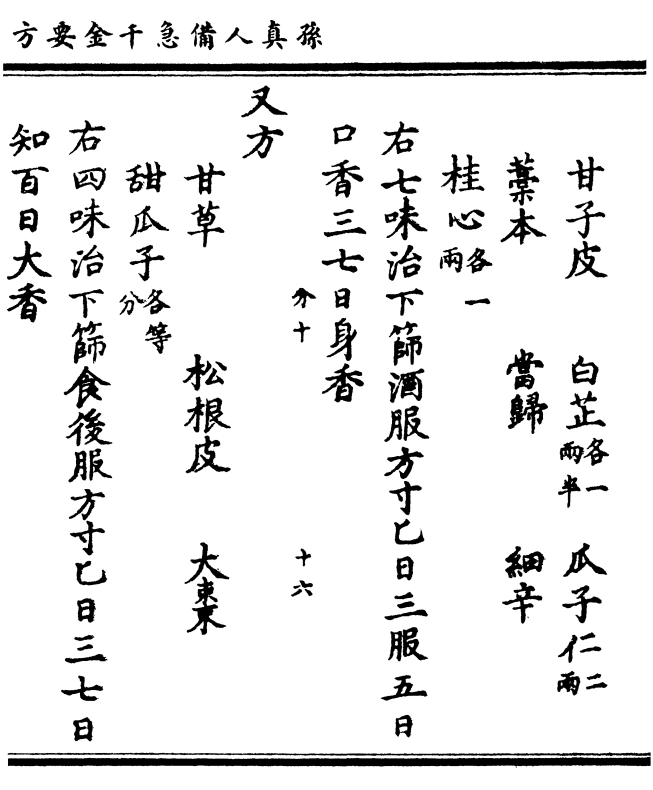 孫真人備急千金要方
甘子皮 白芷各一兩半 瓜子仁二兩
藁本 當歸 細辛
桂心各一兩
右七味治下篩酒服方寸匕日三服五日
口香三七日身香
分十 十六
又方
甘草 松根皮 大棗
甜瓜子各等分
右四味治下篩食後服方寸匕日三七日
知百日大香